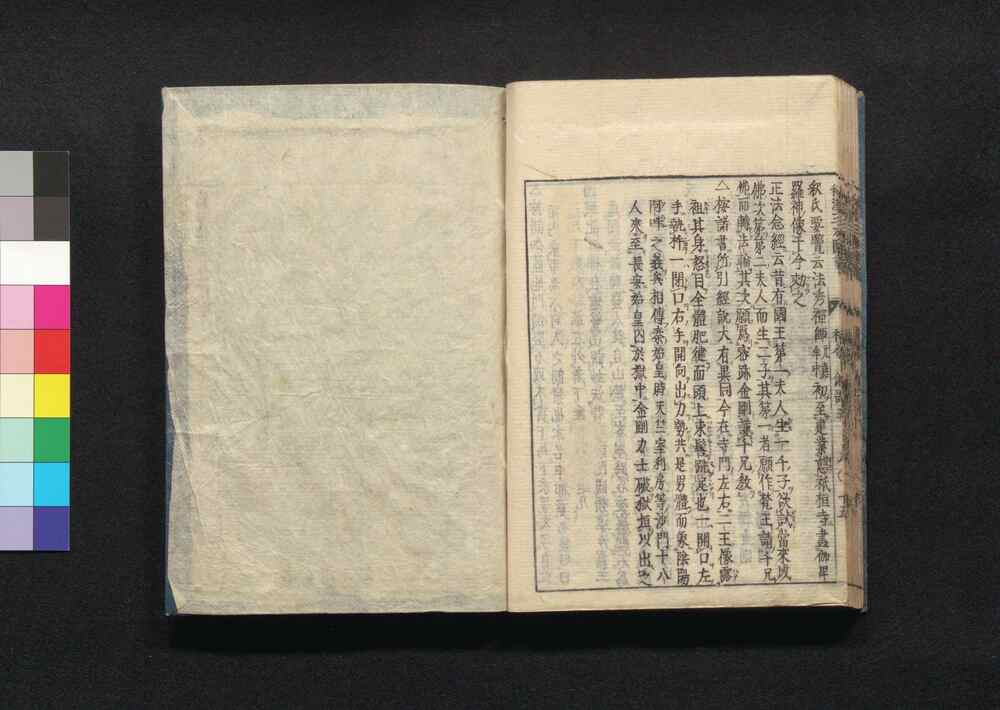 釈氏要覽云法秀禪師初至建業憩祇桓寺畫伽毘
羅神像于今効之
正法念經云昔有國王第一夫人生一千子欲試當來成
佛次第第二夫人而生二子其第一者願作梵王請千兄
佛而轉法輪其次願爲密跡金剛護千兄教
△按諸書所引經說大有異同今在寺門左右二王像露
袒其身怒目全體肥健而頭上束髻跣足也一開口左
手執杵一閉口右手開向出力勢共是男體而象陰陽
呼吸之義矣相傳秦始皇時天竺室利房等沙門十八
人來至長安始皇囚於獄中金剛力士破獄垣以出之